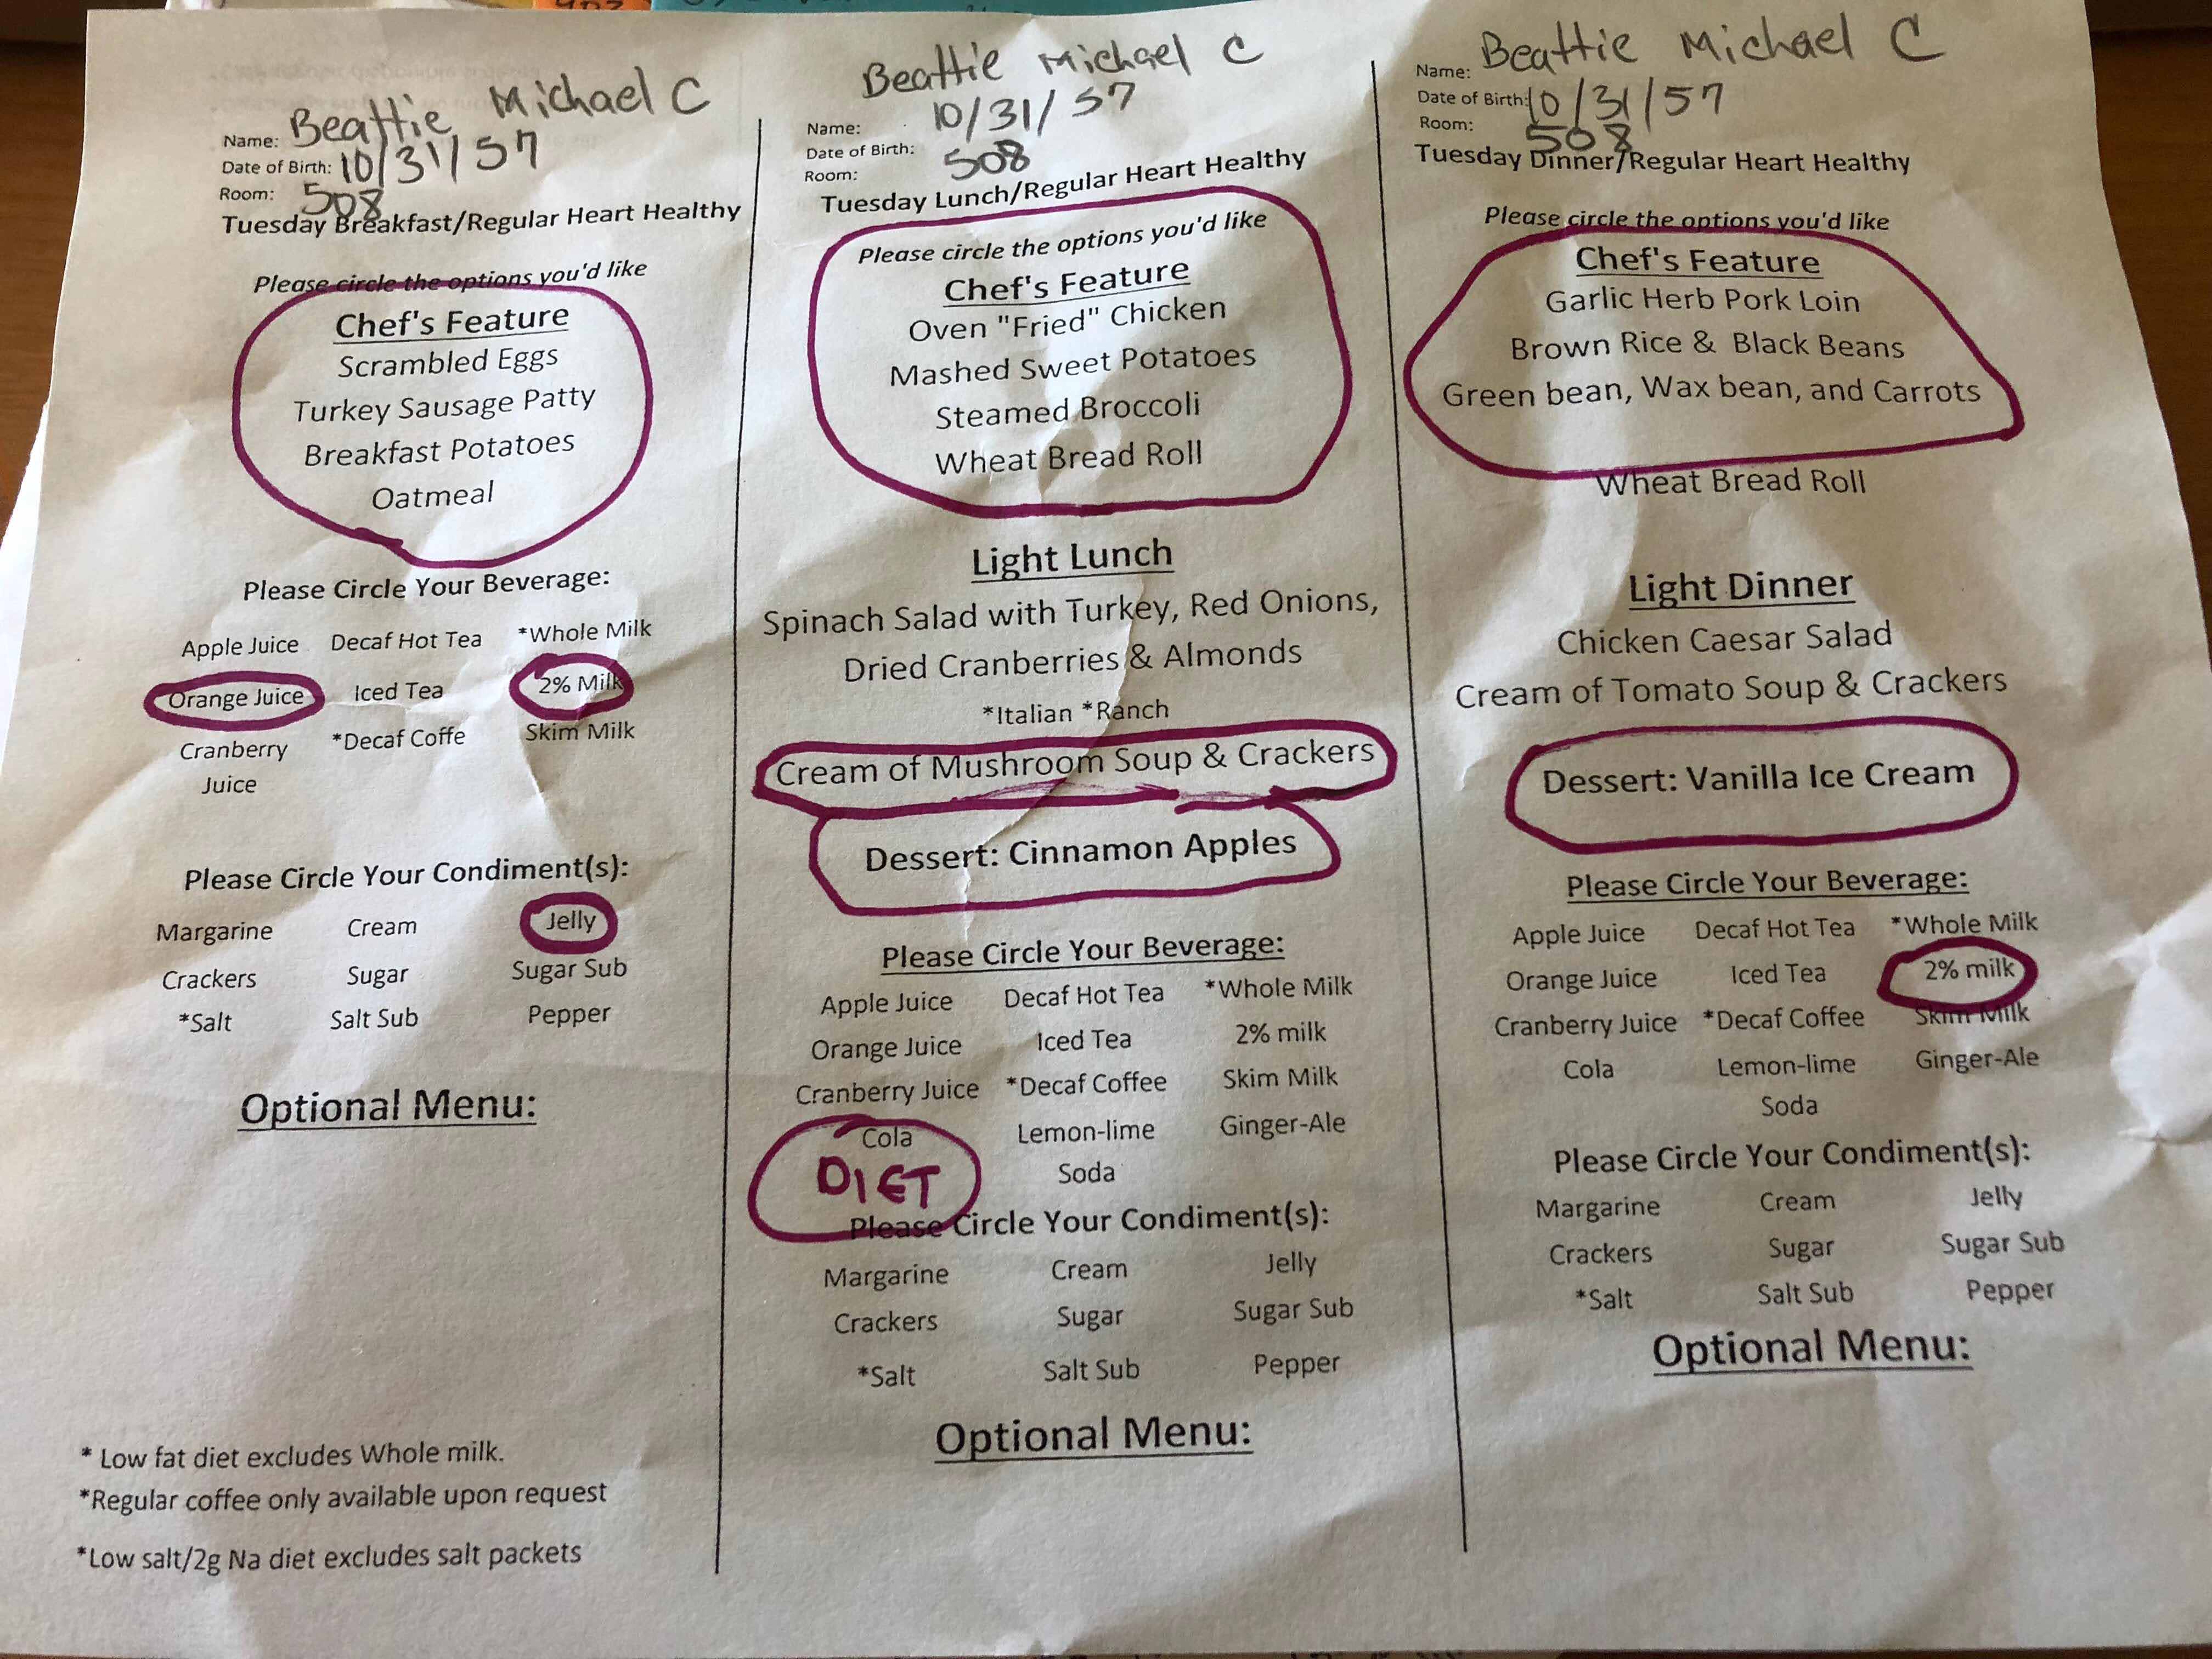 Beattie Michael C
Name:
Date of Birth: 10/31/57
Room: 508
Tuesday Breakfast/Regular Heart Healthy
Please circle the options you'd like
Chef's Feature
Scrambled Eggs
Turkey Sausage Patty
Breakfast Potatoes
Oatmeal
Please Circle Your Beverage:
Apple Juice Decaf Hot Tea *Whole Milk
Orange Juice Iced Tea 2% Milk
Cranberry *Decaf Coffe Skim Milk
Juice
Please Circle Your Condiment(s):
Margarine Cream Jelly
Crackers Sugar Sugar Sub
*Salt Salt Sub Pepper
Optional Menu:
* Low fat diet excludes Whole milk.
*Regular coffee only available upon request
*Low salt/2g Na diet excludes salt packets
Beattie Michael C
Name: 10/31/57
Date of Birth:
Room: 508
Tuesday Lunch/Regular Heart Healthy
Please circle the options you'd like
Chef's Feature
Oven "Fried" Chicken
Mashed Sweet Potatoes
Steamed Broccoli
Wheat Bread Roll
Light Lunch
Spinach Salad with Turkey, Red Onions,
Dried Cranberries & Almonds
*Italian *Ranch
Cream of Mushroom Soup & Crackers
Dessert: Cinnamon Apples
Please Circle Your Beverage:
Apple Juice Decaf Hot Tea *Whole Milk
Orange Juice Iced Tea 2% milk
Cranberry Juice *Decaf Coffee Skim Milk
Cola Lemon-lime Ginger-Ale
DIET Soda
Please Circle Your Condiment(s):
Margarine Cream Jelly
Crackers Sugar Sugar Sub
*Salt Salt Sub Pepper
Optional Menu:
Beattie Michael C
Name:
Date of Birth: 10/31/57
Room: 508
Tuesday Dinner/Regular Heart Healthy
Please circle the options you'd like
Chef's Feature
Garlic Herb Pork Loin
Brown Rice & Black Beans
Green bean, Wax bean, and Carrots
Wheat Bread Roll
Light Dinner
Chicken Caesar Salad
Cream of Tomato Soup & Crackers
Dessert: Vanilla Ice Cream
Please Circle Your Beverage:
Apple Juice Decaf Hot Tea *Whole Milk
Orange Juice Iced Tea 2% milk
Cranberry Juice *Decaf Coffee Skim Milk
Cola Lemon-lime Ginger-Ale
Soda
Please Circle Your Condiment(s):
Margarine Cream Jelly
Crackers Sugar Sugar Sub
*Salt Salt Sub Pepper
Optional Menu: